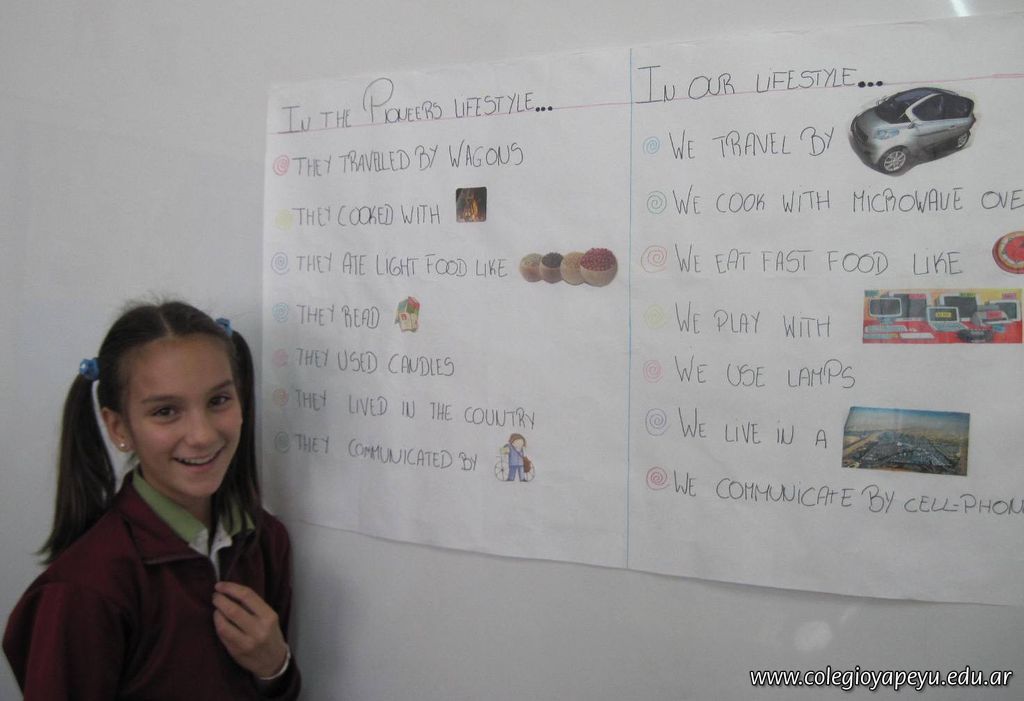 IN THE PIONEERS LIFESTYLE...
THEY TRAVELLED BY WAGONS
THEY COOKED WITH
THEY ATE LIGHT FOOD LIKE
THEY READ
THEY USED CANDLES
THEY LIVED IN THE COUNTRY
THEY COMMUNICATED BY
IN OUR LIFESTYLE...
WE TRAVEL BY
WE COOK WITH MICROWAVE OVE
WE EAT FAST FOOD LIKE
WE PLAY WITH
WE USE LAMPS
WE LIVE IN A
WE COMMUNICATE BY CELL-PHON
www.colegioyapeyu.edu.ar